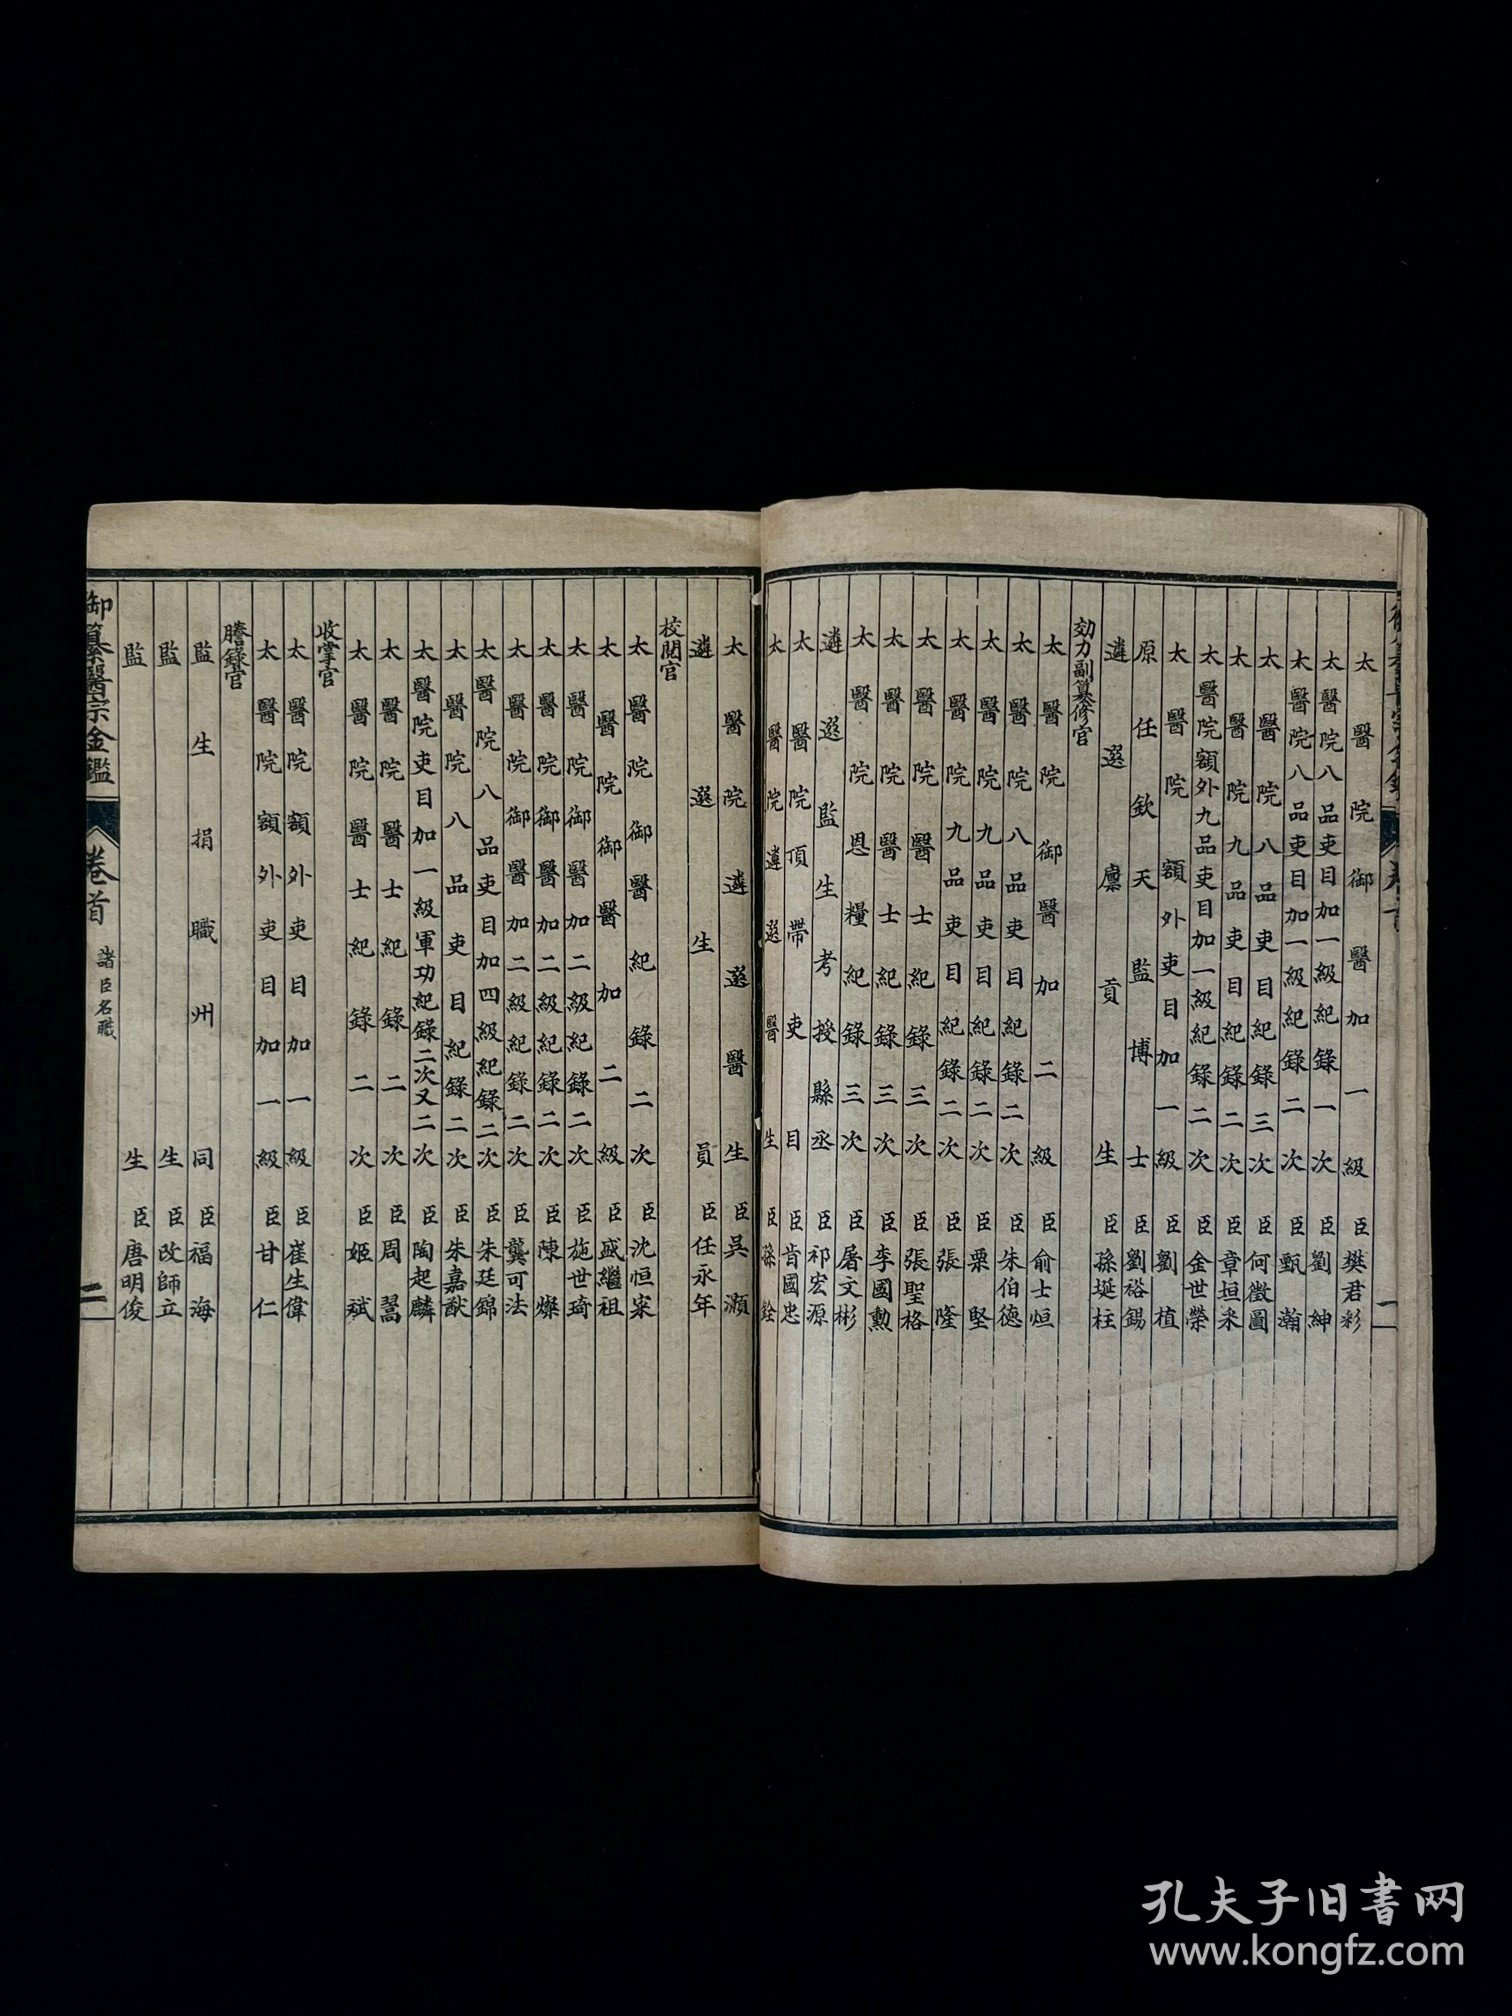 太醫院御醫加一級臣樊君彩
太醫院八品吏目加一級紀錄一次臣劉紳
太醫院八品吏目加一級紀錄二次臣甄瀚
太醫院八品吏目紀錄三次臣何徵圖
太醫院九品吏目紀錄二次臣章垣采
太醫院額外九品吏目加一級紀錄二次臣金世榮
太醫院額外吏目加一級臣劉植
原任欽天監博士臣劉裕錫
遴選廩貢生臣孫埏柱
効力副纂修官
太醫院御醫加二級臣俞士烜
太醫院八品吏目紀錄二次臣朱伯德
太醫院九品吏目紀錄二次臣栗堅
太醫院九品吏目紀錄二次臣張隆
太醫院醫士紀錄三次臣張聖格
太醫院醫士紀錄三次臣李國勲
太醫院恩糧紀錄三次臣屠文彬
遴選監生考授縣丞臣祁宏源
太醫院頂帶吏目臣肯國忠
太醫院遴選醫生臣孫銓
太醫院遴選醫生臣吳灝
遴選生員臣任永年
校閱官
太醫院御醫紀錄二次臣沈恒寀
太醫院御醫加二級臣盛繼祖
太醫院御醫加二級紀錄二次臣施世琦
太醫院御醫加二級紀錄二次臣陳燦
太醫院御醫加二級紀錄二次臣龔可法
太醫院八品吏目加四級紀錄二次臣朱廷錦
太醫院八品吏目紀錄二次臣朱嘉猷
太醫院吏目加一級軍功紀錄二次又二次臣陶起麟
太醫院醫士紀錄二次臣周翯
太醫院醫士紀錄二次臣姬斌
收掌官
太醫院額外吏目加一級臣崔生偉
太醫院額外吏目加一級臣甘仁
謄錄官
監生捐職州同臣福海
監生臣改師立
監生臣唐明俊
御纂醫宗金鑑
卷首
諸臣名職
二
孔夫子旧书网
www.kongfz.com